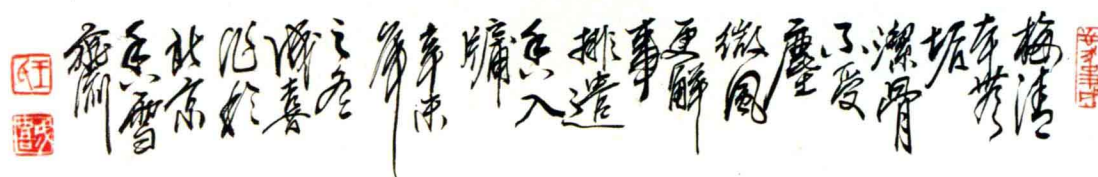 梅清
本無
垢
潔骨
不受
塵
微風
更解
事
排遣
香入
牖
辛未
年
之冬
成喜
於
北京
香雪
齋
王氏
成喜